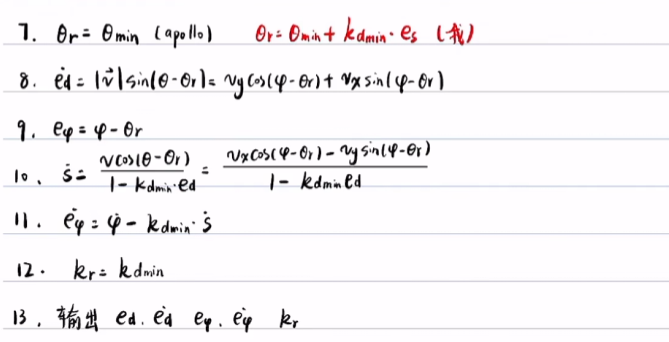 7. θr = θmin (apollo) θr = θmin + kdmin · es (我)
8. ėd = |v⃗| sin(θ-θr) = vy cos(φ-θr) + vx sin(φ-θr)
9. eφ = φ - θr
10. ṡ = \frac{v cos(θ-θr)}{1 - kdmin · ed} = \frac{vx cos(φ-θr) - vy sin(φ-θr)}{1 - kdmin ed}
11. ėφ = φ̇ - kdmin · ṡ
12. kr = kdmin
13. 输出 ed. ėd eφ. ėφ kr